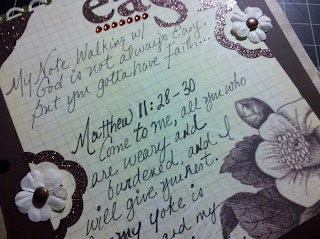 easy
My Note Walking w/
God is not always Easy.
But you gotta have Faith...
Matthew 11:28-30
Come to me, all you who
are weary and
burdened, and I
will give you rest.
my yoke is
and my